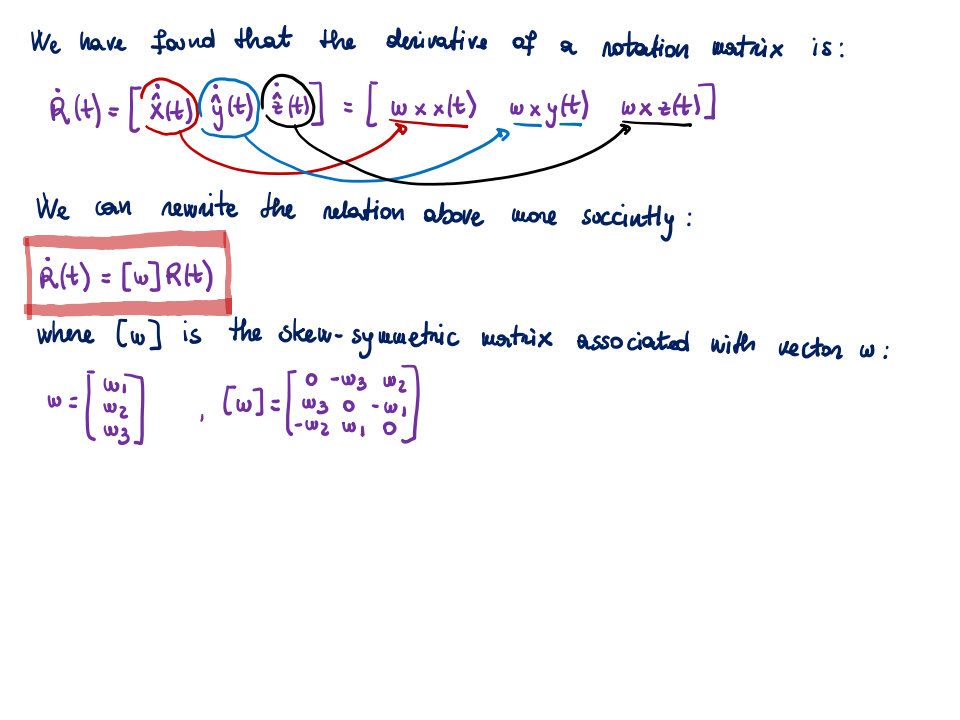 We have found that the derivative of a rotation matrix is:
Ṙ(t) = [ x̂̇(t) ŷ̇(t) ẑ̇(t) ] = [ w × x(t) w × y(t) w × z(t) ]
We can rewrite the relation above more succintly:
Ṙ(t) = [w] R(t)
where [w] is the skew-symmetric matrix associated with vector w:
w = [ w1 w2 w3 ] , [w] = [ 0 -w3 w2
w3 0 -w1
-w2 w1 0 ]